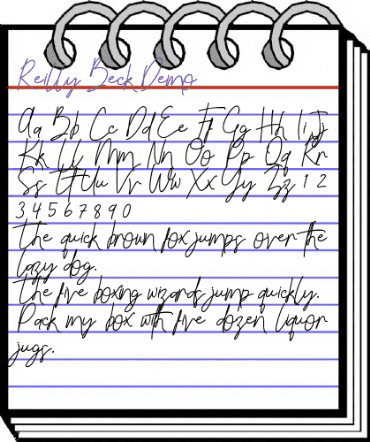 Reilly Beck Demo
Aa Bb Cc Dd Ee Ff Gg Hh Ii Jj
Kk Ll Mm Nn Oo Pp Qq Rr
Ss Tt Uu Vv Ww Xx Yy Zz 1 2
3 4 5 6 7 8 9 0
the quick brown fox jumps over the
lazy dog.
The five boxing wizards jump quickly.
Pack my box with five dozen liquor
jugs.